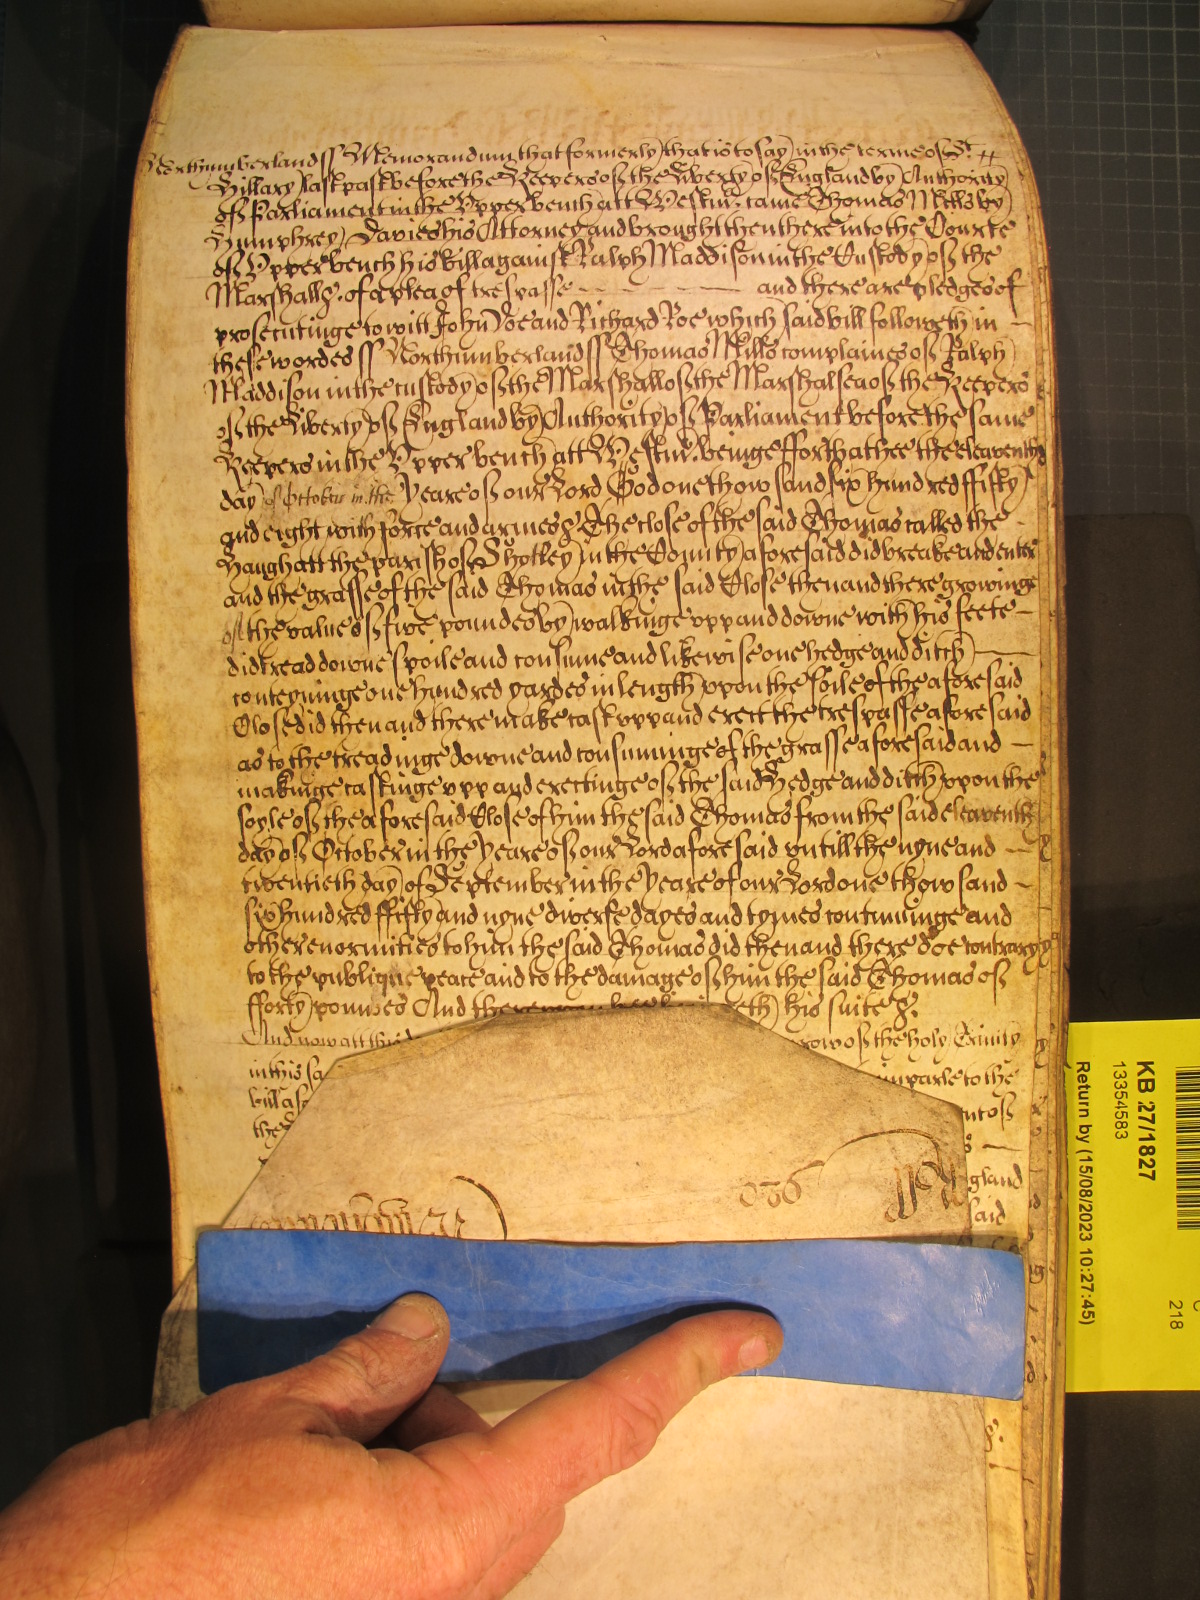 Northumberland ss Memorandum that formerly that is to say in the terme of St.
Hillary last past before the Keepers of the Liberty of England by Authority
of Parliament in the Upper bench att Westmr. came Thomas Mills by
Humphrey Davies his Attorney and brought then there into the Courte
of Upper bench his bill against Ralph Maddison in the Custody of the
Marshall &c. of a plea of trespasse - - - - - and there are pledges of
prosecutinge to witt John Doe and Richard Roe which said bill followeth in
these wordes ss Northumberland ss Thomas Mills complaines of Ralph
Maddison in the custody of the Marshall of the Marshalsea of the Keepers
of the Liberty of England by Authority of Parliament before the same
Keepers in the Upper bench att Westmr. beinge ffor that hee the eleaventh
day of October in the yeare of our Lord God one thowsand six hundred ffifty
and eight with force and armes &c The close of the said Thomas called the
Haugh att the parish of Shotley in the County aforesaid did breake and enter
and the grasse of the said Thomas in the said Close then and there growinge
of the value of five poundes by walkinge upp and downe with his feete
did tread downe spoile and consume and likewise one hedge and ditch
conteyninge one hundred yardes in length upon the soile of the aforesaid
Close did then and there make cast upp and erect the trespasse aforesaid
as to the treadinge downe and consuminge of the grasse aforesaid and
makinge castinge upp and erectinge of the said Hedge and ditch upon the
soyle of the aforesaid Close of him the said Thomas from the said eleaventh
day of October in the yeare of our Lord aforesaid untill the nyne and
twentieth day of September in the yeare of our Lord one thowsand
six hundred ffifty and nyne diverse dayes and tymes continuinge and
other enormities to him the said Thomas did then and there doe contrary
to the publique peace and to the damage of him the said Thomas of
fforty poundes And thereupon hee bringeth his suite &c.
And now att this morrow of the holy Trinity
in this imparle to the
bill as
the
gland
said
036
KB 27/1827
13354583
Return by (15/08/2023 10:27:45)
218